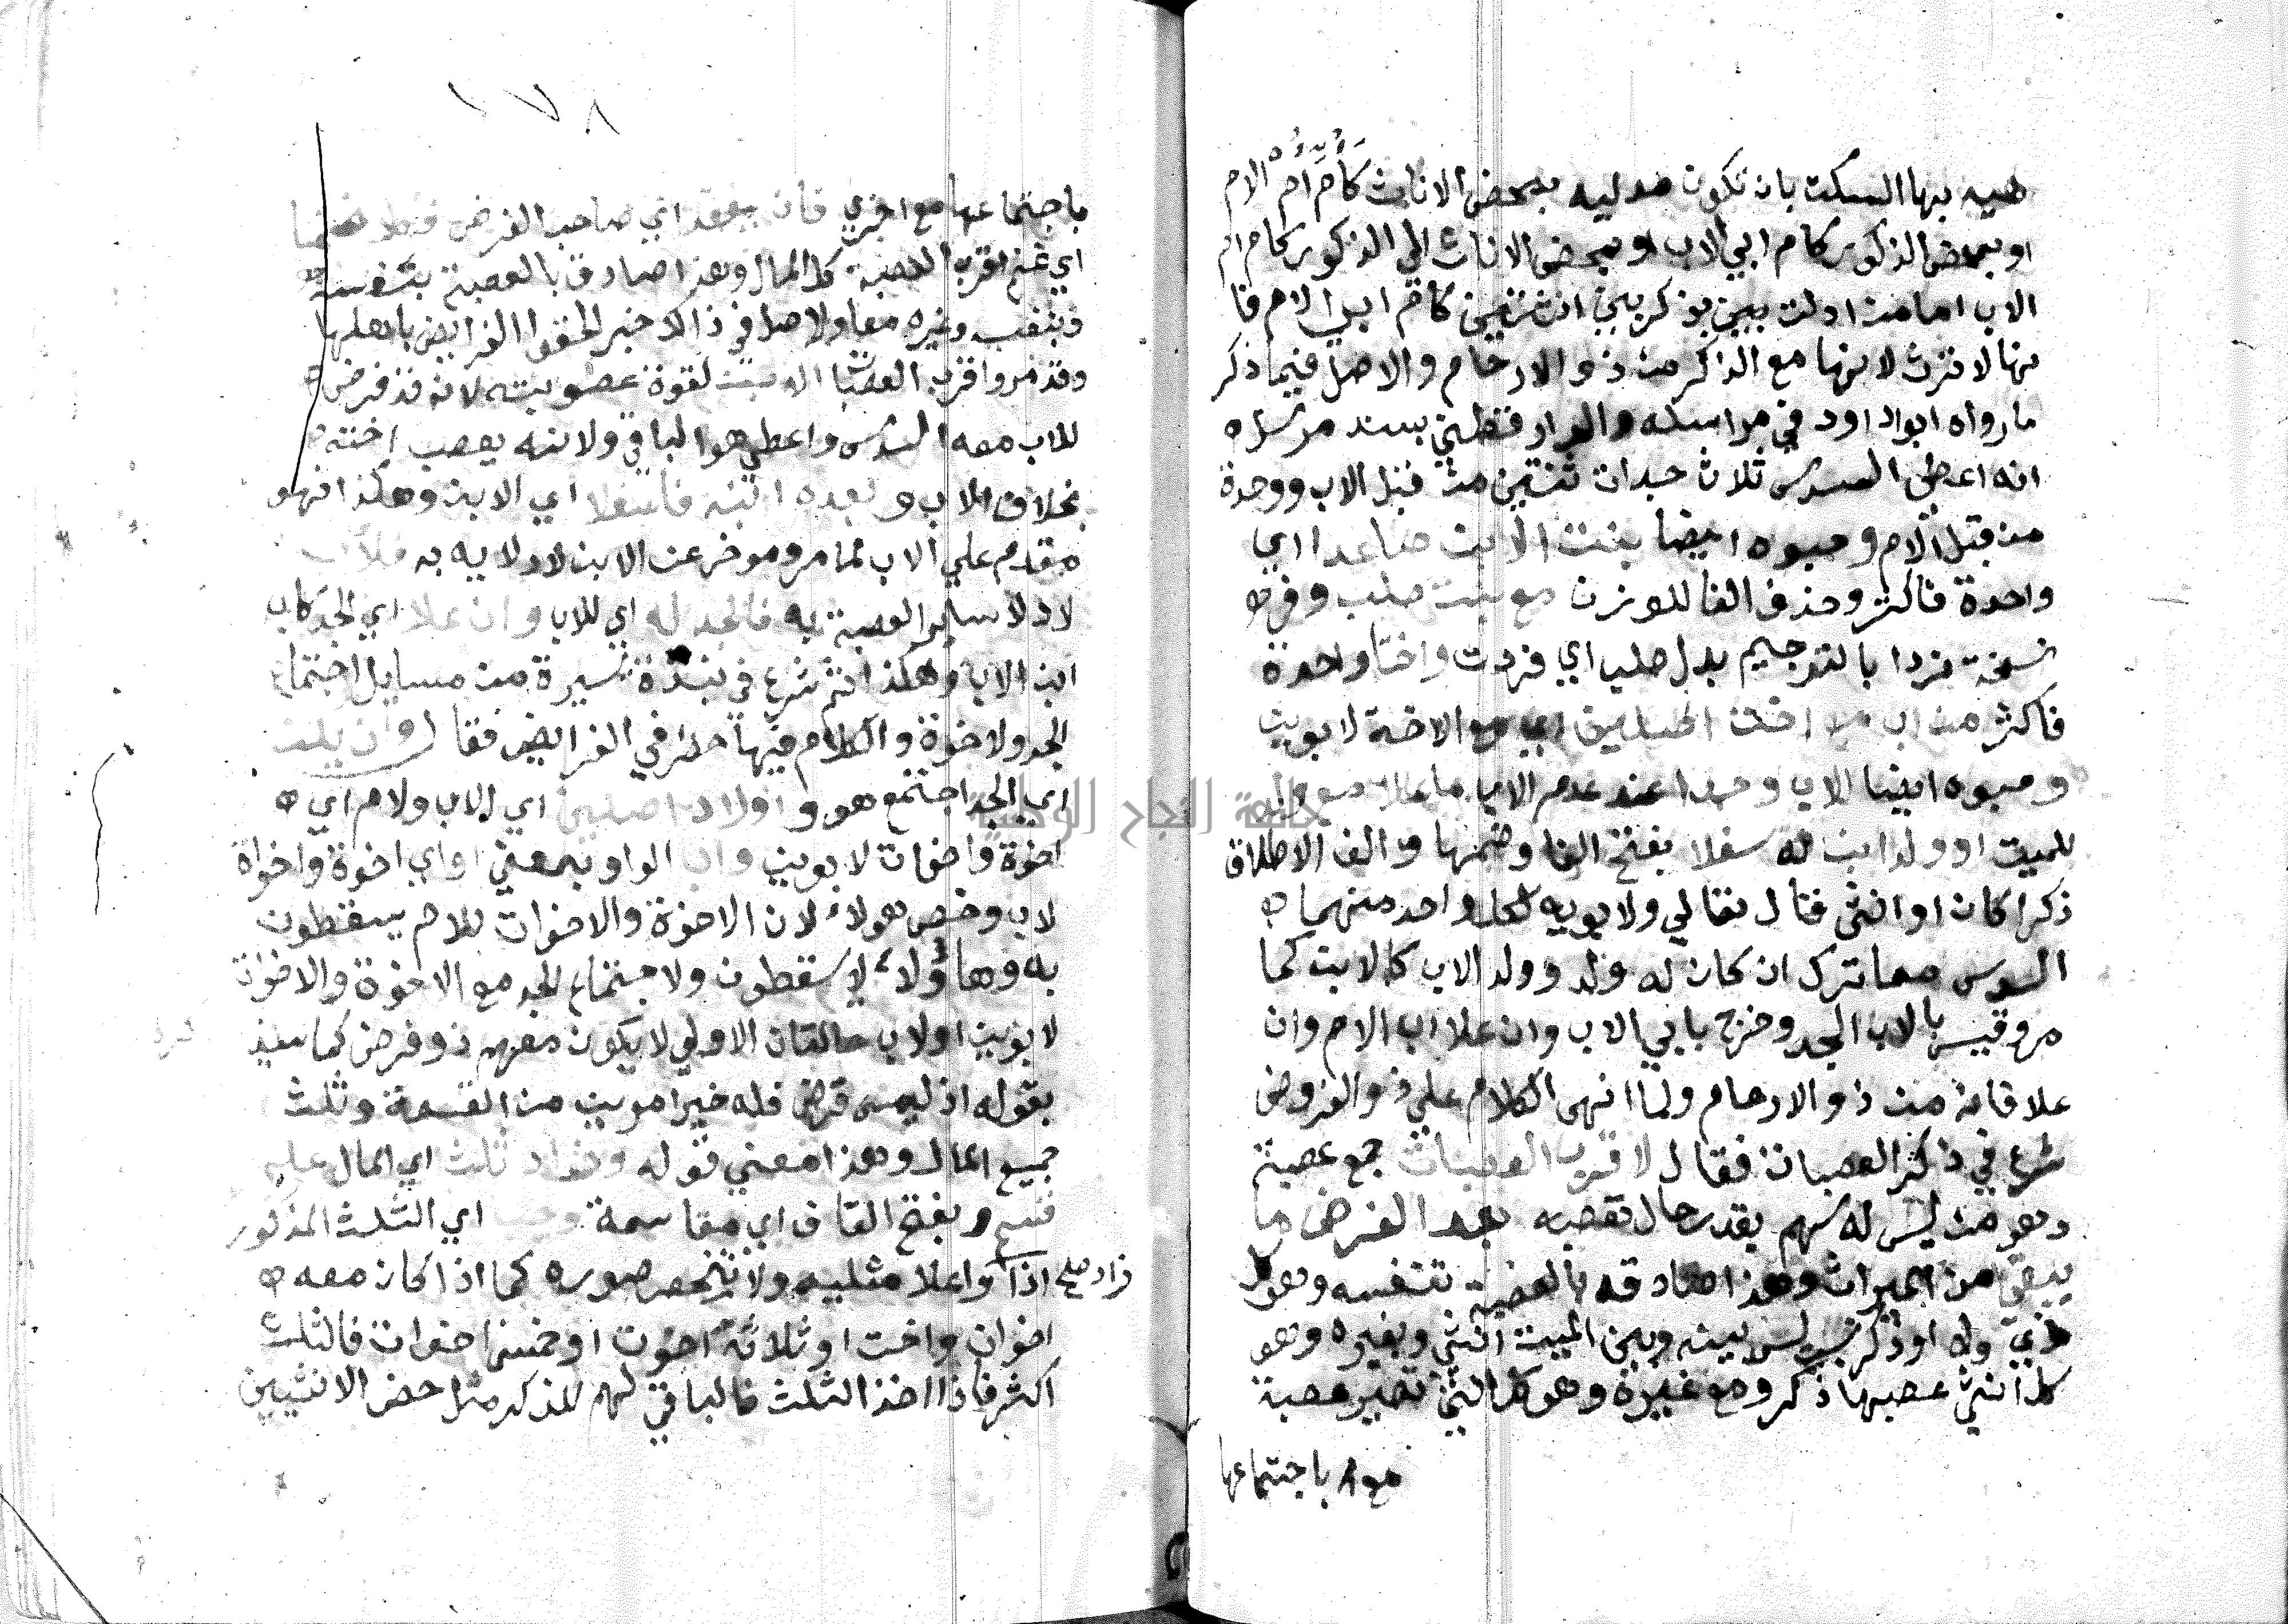 هيه بها السكت بان تكون مدليه بمحض الاناث كام ام الام
او بمحض الذكور كام ابي الاب او بمحض الاناث الي الذكور كام ام
الاب اما من ادلت ببين بذكر بين انثيين كام ابي الام فا
نها لا ترث لانها مع الذكر من ذو الارحام والاصل فيما ذكر
ما رواه ابوا داود في مراسله والدار قطني بسند مرسل ه
انه اعطي السدس ثلاث جدات ثنتين من قبل الاب ووحدة
من قبل الام وحبوه ايضا بنت الابن صاعدا اي
واحدة فاكثر وحذف الفا للوزن مع بنت صلب وفي
نسخة فردا بالترجيم بدل صلب اي فردت واختا واحدة
فاكثر من اب مع اخت اصلين اي مع الاخت لابوين
وحبوه ايضا الاب وجدا عند عدم الاب ما علا مع ولد
للميت او ولد ابن له سفلا بفتح الفا وضمها والف الاطلاق
ذكرا كان او انثى قال تعالي ولابويه لكل واحد منهما
السدس مما ترك ان كان له ولد وولد الابن كالابن كما
مر وقيس بالاب الجد وخرج بابي الاب وان علا اب الام وان
علا فانه من ذو الارحام ولما انهى الكلام علي ذو الفروض
شرع في ذكر العصبات فقال لاقرب العصبات جمع عصبة
وهو من ليس له سهم مقدر حال تعصبه بعد الفرض ما
يبقي من الميراث وهذا صادقه بالعصبة بنفسه وهو كل
ذي ولا او ذكر نسب ليس بينه وبين الميت انثي وبغيره وهو
كل انثي عصبها ذكر ومع غيره وهو كل انثي تصير عصبة
باجتماعها
١٧٨
باجتماعها مع اخري فان يفقد اي صاحب الفرض فكلا غنما
اي غنم اقرب العصبة كل المال وهذا صادق بالعصبة بنفسه
وبنفسه وغيره معا والاصل في ذالك خبر الحقوا الفرايض باهلها
وقد مر واقرب العصبات الابن لقوة عصوبته لانه قد فرض
للاب معه السدس واعطي هو الباقي ولانه يعصب اخته
بخلاف الاب وبعده ابنه فاسفلا اي الابن وهكذا فهو
مقدم علي الاب لما مر وموخر عن الابن لادلايه به فالاب
لادلا ساير العصبة به فالجد له اي للاب وان علا اي الجد كاب
اب الاب وهكذا ثم شرع في نبذة يسيرة من مسايل اجتماع
الجد والاخوة والكلام فيها خطر في الفرايض فقال وان يكن
اي الجد اجتمع هو و اولاد اصلين اي الاب والام اي
اخوة واخوات لابوين واب الواو بمعني او اي اخوة واخواة
لاب وخص هولاء لان الاخوة والاخوات للام يسقطون
به وهاؤلاء لا يسقطون ولاجتماع الجد مع الاخوة والاخوات
لابوين او لاب حالتان الاولي لا يكون معهم ذو فرض كما سيذ
بقوله اذ ليس فرض فله خير امرين من القسمة وثلث
جميع المال وهذا معني قوله وزاد ثلث اي المال علي
قسم وبفتح القاف اي مقاسمة وجب اي الثلث المذكور
زاد صلح اذا واعلا مثليه ولا تنحصر صوره كما اذا كان معه
اخوان واخت او ثلاثة اخوت او خمس اخوات فالثلث
اكثر فاذا اخذ الثلث فالباقي لهم للذكر مثل حض الانثيين
جامعة النجاح الوطنية